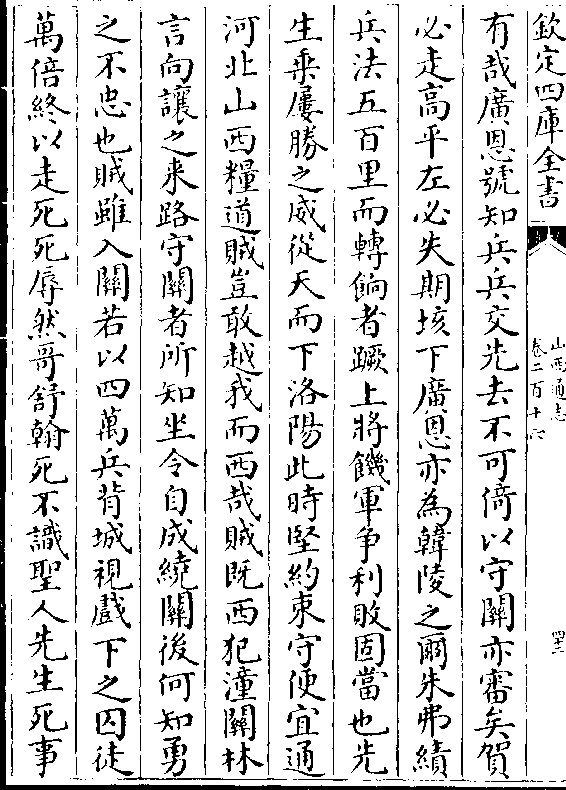 欽定四庫全書
山西通志
卷二百十六
四十二
有哉廣恩號知兵兵交先去不可倚以守關亦審矣賀
必走高平左必失期垓下廣恩亦為韓陵之爾朱弗績
兵法五百里而轉餉者蹶上將饑軍争利敗固當也先
生乗屢勝之威從天而下洛陽此時堅約束守便宜通
河北山西糧道賊豈敢越我而西哉賊既西犯潼關林
言向讓之来路守關者所知坐令自成繞關後何知勇
之不忠也賊雖入關若以四萬兵背城視戲下之囚徒
萬倍終以走死死辱然哥舒翰死不識聖人先生死事